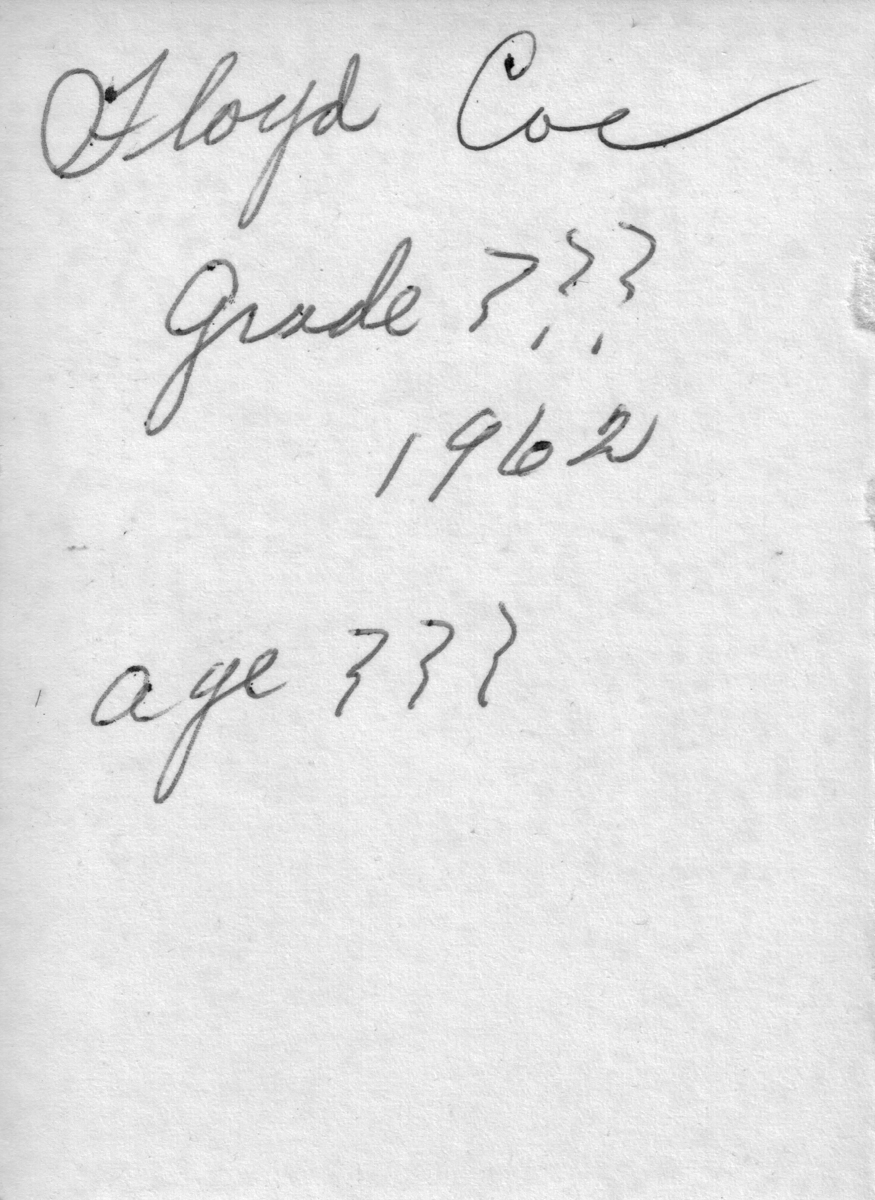 Floyd Coe
Grade ???
1962
age ???